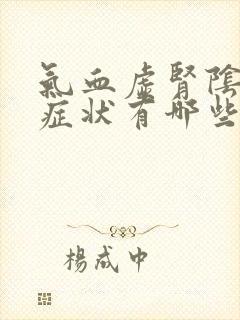 氣血虛腎陰
症狀有哪些
楊成中